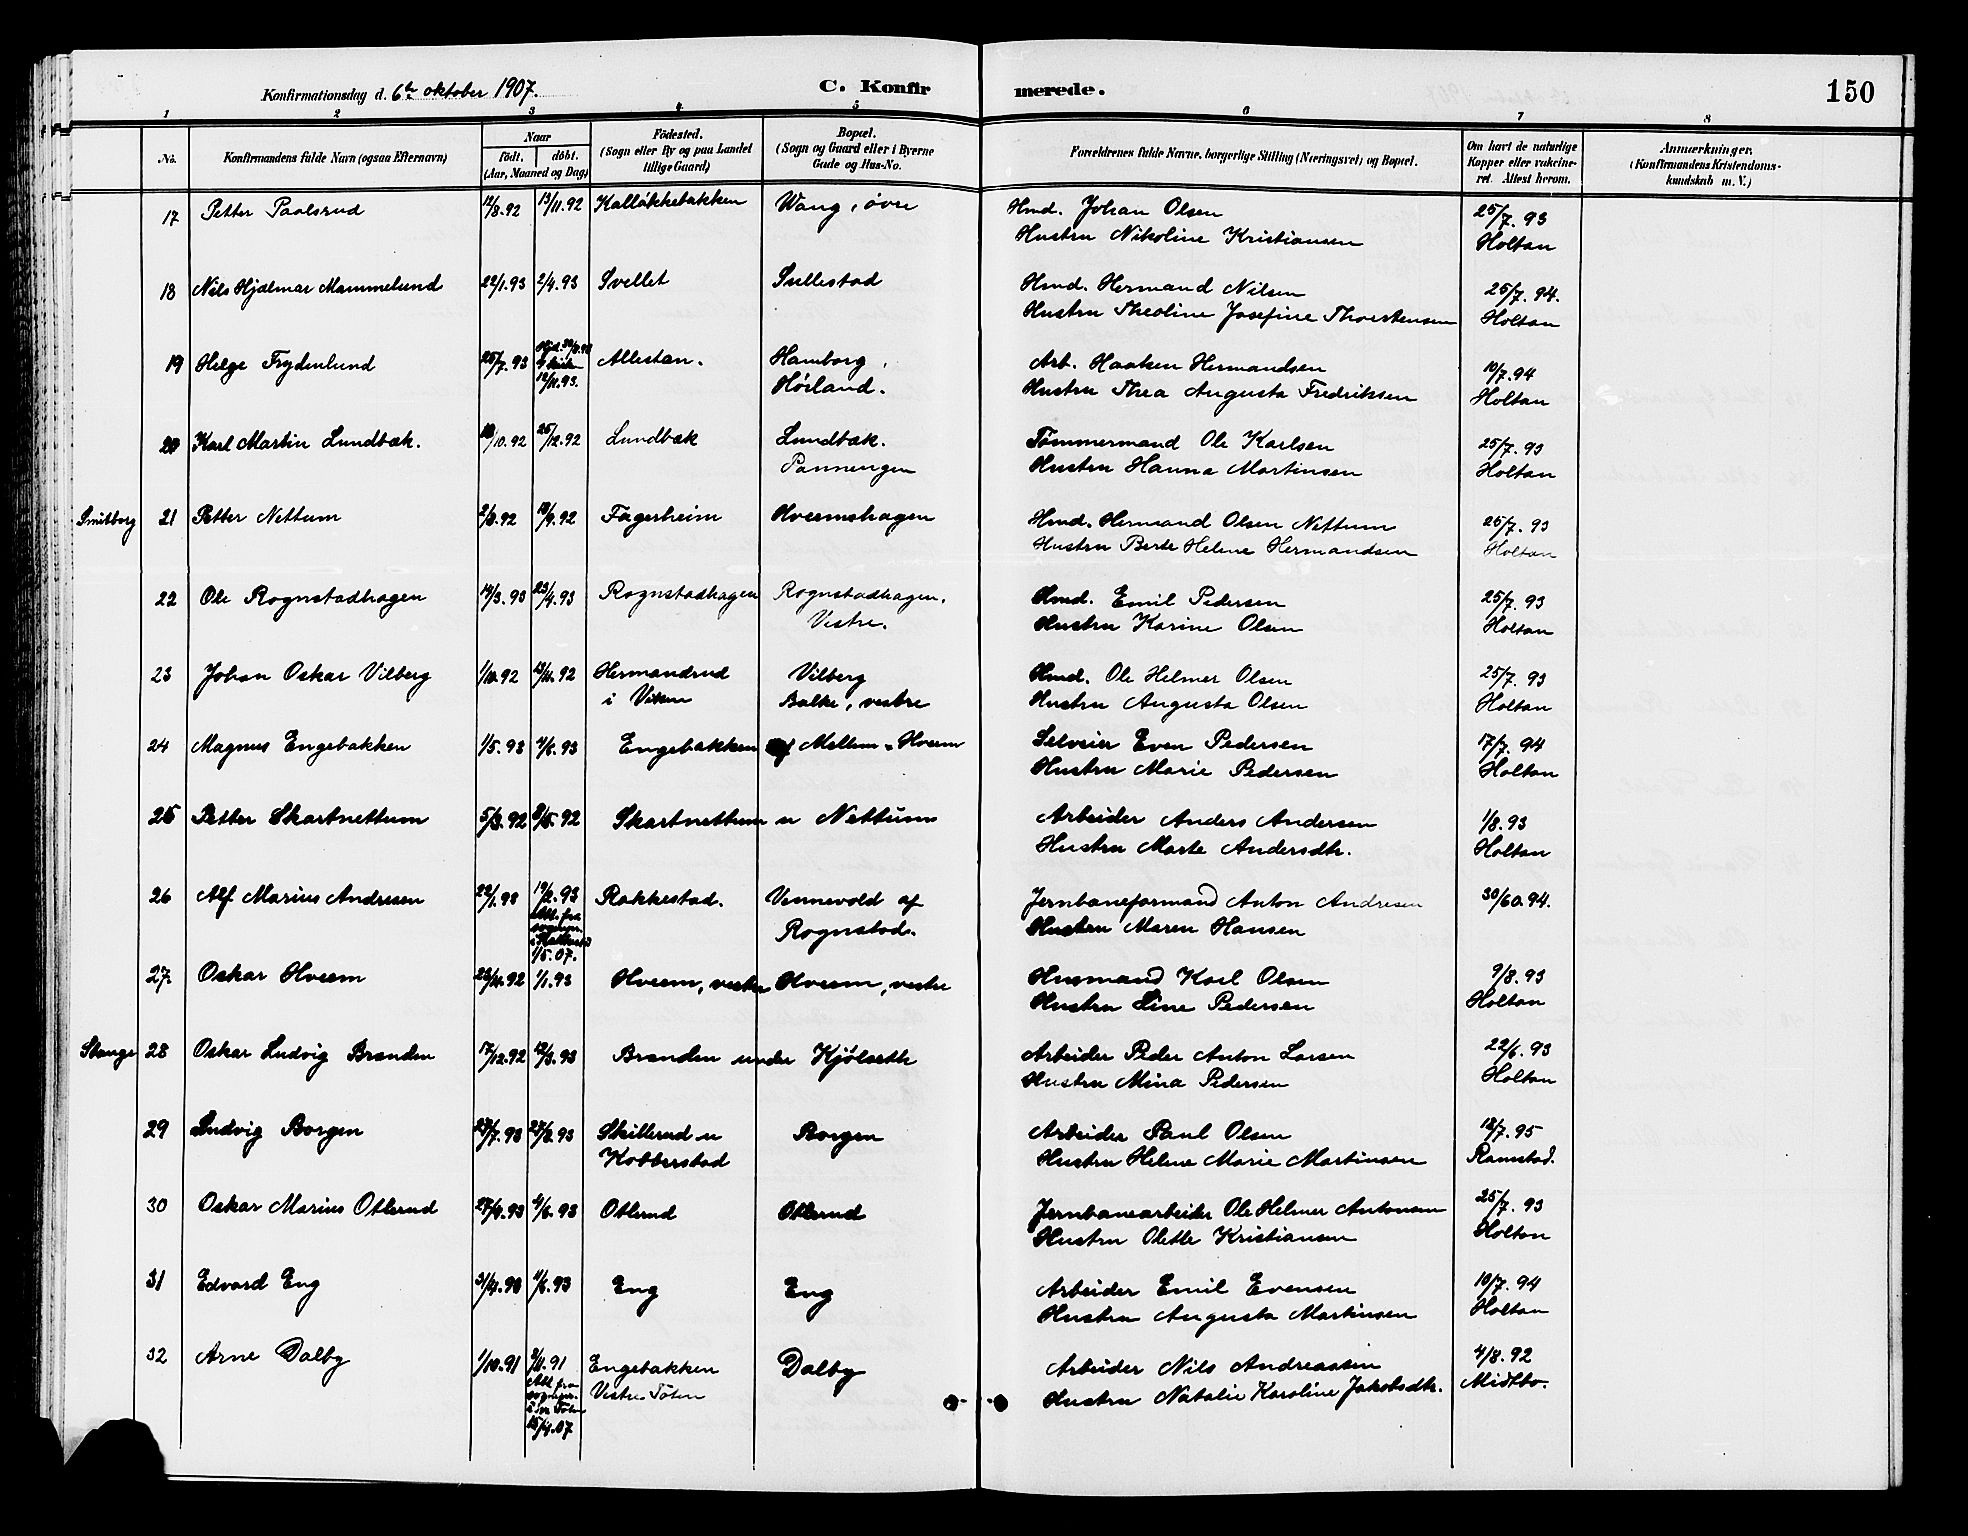 Konfirmationsdag d. 6te oktober 1907. C. Konfirmerede. 150
1 2 3 4 5 6 7 8
No. Konfirmandens fulde Navn (ogsaa Efternavn) Naar födt. döbt. (Aar, Maaned og Dag) Födested. (Sogn eller By og paa Landet tillige Gaard) Bopæl. (Sogn og Gaard eller i Byerne Gade og Hus-No. Forældrenes fulde Navne, borgerlige Stilling (Næringsvei) og Bopæl. Om havt de naturlige Kopper eller vakcineret. Attest herom. Anmærkninger. (Konfirmandens Kristendomskundskab m. V.)
17 Petter Paalsrud 12/8.92 13/11.92 Kalløkkebakken Wang, øvre Hmd. Johan Olsen 25/7.93
Hustru Nikoline Kristiansen Holtan
18 Nils Hjalmar Mammelund 22/1.93 2/4.93 Svellet Sullestad Hmd. Hermand Nilsen 25/7.94.
Hustru Theoline Josefine Thorstensen Holtan
19 Helge Frydenlund 25/7.93 12/11.93. Allestan. Hamborg, Arb. Haaken Hermandsen 10/7.94
Hörland. Hustru Thea Augusta Fredriksen Holtan
20 Karl Martin Lundbæk. /10.92 26/12.92 Lundbæk Lundbæk. Tömmermand Ole Karlsen 25/7.93
Panneengen Hustru Hanna Martinsen Holtan
Smitborg 21 Petter Nettum 2/8.92 18/9.92 Fagerheim Hvermshagen Hmd. Hermand Olsen Nettum 25/7.93
Hustru Berte Helene Hermandsen Holtan
22 Ole Rognstadhagen 14/3.93 23/4.93 Rognstadhagen Rognstadhagen, Hmd. Emil Pedersen 25/7.93
Vestre. Hustru Karine Olsen Holtan
23 Johan Oskar Vilberg 1/10.92 13/11.92 Hermandrud Vilberg Hmd. Ole Helmer Olsen 25/7.93
i Viken Balke, vestre Hustru Augusta Olsen Holtan
24 Magnus Engebakken 1/5.93 4/6.93 Engebakken af Mellem-Hverm Selveier Even Pedersen 17/7.94
Hustru Marie Pedersen Holtan
25 Petter Skartnettum 5/3.92 8/5.92 Skartnettum u Nettum Arbeider Anders Andersen 1/8.93
Hustru Marte Andersdtr. Holtan
26 Alf Marius Andresen 22/1.93 19/2.93 Rakkestad. Vennevold af Jernbaneformand Anton Andresen 30/60.94.
Att. fra
sognepr. Rognstad. Hustru Maren Hansen
1/5.07.
27. Oskar Hverm 23/11.92 1/1.93 Hverm, vestre Hverm, vestre Husmand Karl Olsen 9/8.93
Hustru Line Pedersen Holtan
Stange 28 Oskar Ludvig Brænden 17/12.92 12/3.93 Brænden under Kjölseth Arbeider Peder Anton Larsen 22/6.93
Hustru Mina Pedersen Holtan
29 Ludvig Borgen 23/7.93 27/8.93 Skillerud u Borgen Arbeider Paul Olsen 12/7.95
Kobberstad Hustru Helene Marie Martinsen Ramstad.
30 Oskar Marius Otlerud 27/4.93 4/6.93 Otlerud Otlerud Jernbanearbeider Ole Helmer Antonsen 25/7.93
Hustru Olette Kristiansen Holtan
31 Edvard Eng 3/4.93 4/6.93 Eng Eng Arbeider Emil Evensen 10/7.94
Hustru Augusta Martinsen Holtan
32 Arne Dalby 1/10.91 8/11.91 Engebakken Dalby Arbeider Nils Andreassen 4/8.92
Att. fra
sognepr. Vestre Töten Hustru Natalie Karoline Jakobsdtr. Midtbo.
15/4.07